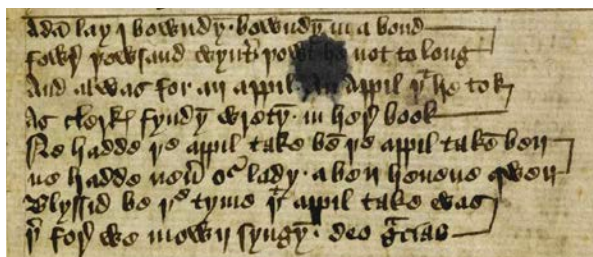 Adā lay I bowndyn · bowndyn in a bond
fowr þowsand wynter þowt he not to long
And al was for an appil An appil þt he tok
As clerkis fyndyn wretyn · in her book
Ne hadde þe appil take bē þe appil takē ben
ne hadde neuer our lady · a ben heuene qwen
Blyssid be þe tyme þt appil take was
þer for we mown syngyn · deo gracias